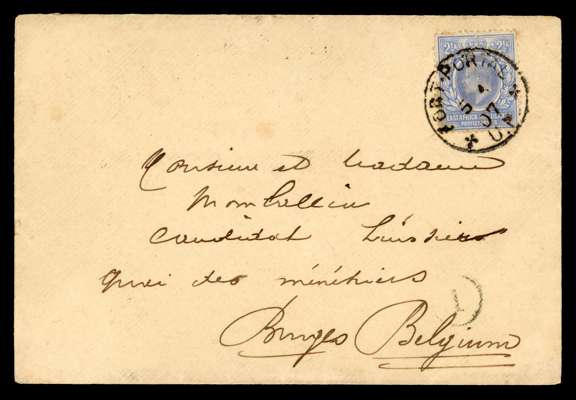 2½ 2½
EAST AFRICA
PROTECTORATES
FORT·PORTAL
U.P.
5
07
Monsieur et Madame
candidat huissier
quai des ménétriers
D
Bruges Belgium